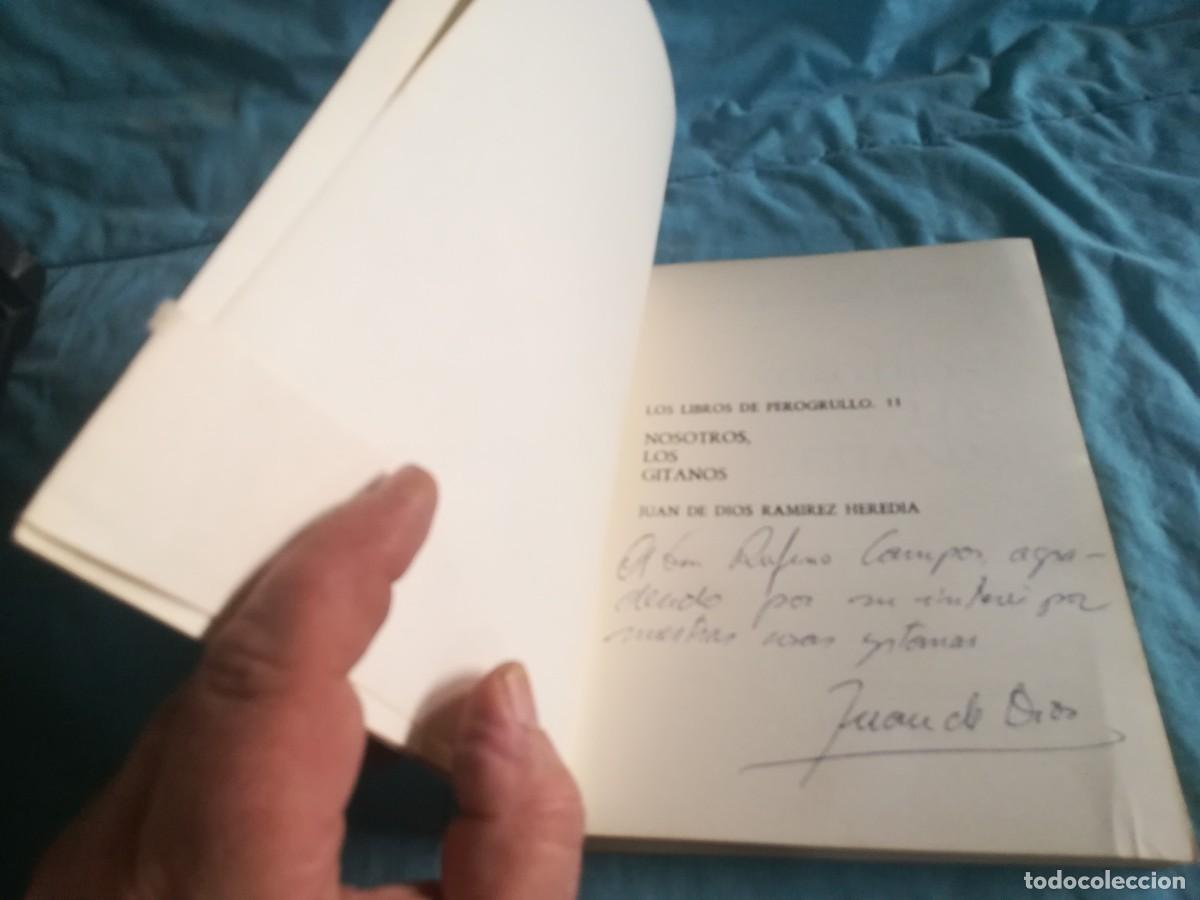 LOS LIBROS DE PEROGRULLO. 11
NOSOTROS,
LOS
GITANOS
JUAN DE DIOS RAMIREZ HEREDIA
A Don Rufino Campos, agra-
deciendo por su interés por
nuestras cosas gitanas
Juan de Dios
todocoleccion